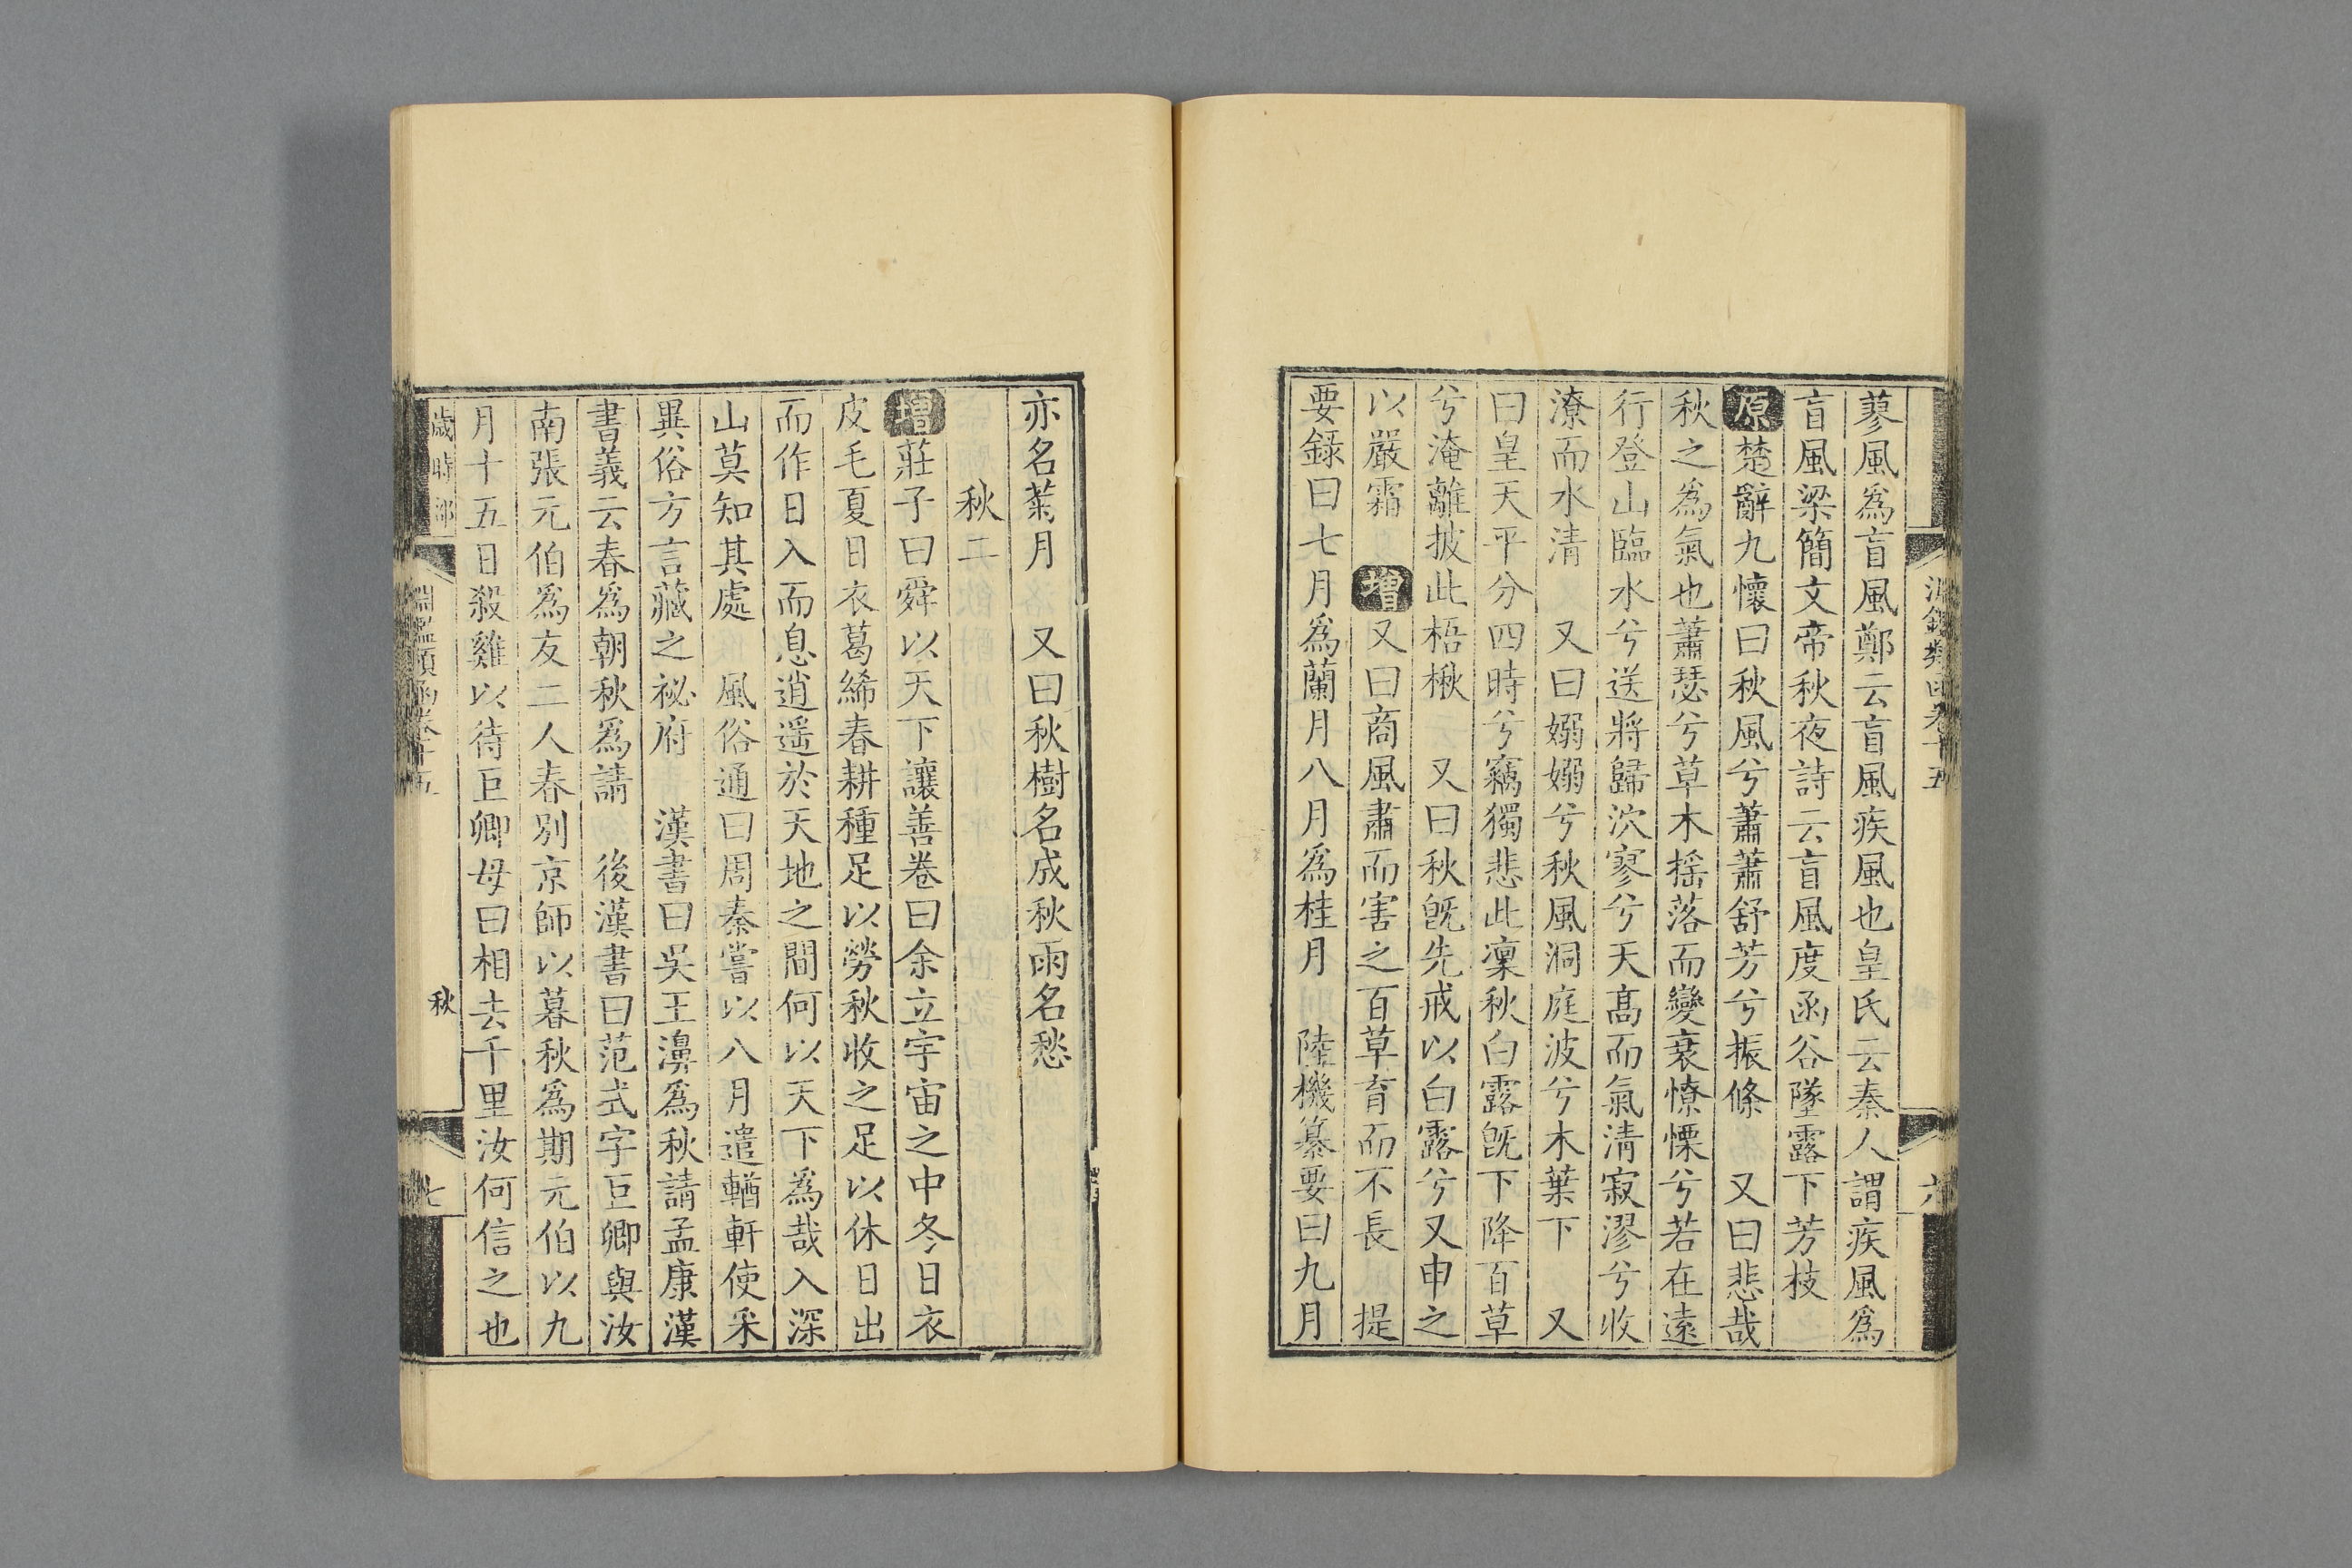 蓼風爲盲風鄭云盲風疾風也皇氏云秦人謂疾風爲
盲風梁簡文帝秋夜詩云盲風度函谷墜露下芳枝
原楚辭九懷曰秋風兮蕭蕭舒芳兮振條　又曰悲哉
秋之爲氣也蕭瑟兮草木搖落而變衰憭慄兮若在遠
行登山臨水兮送將歸泬寥兮天高而氣淸寂漻兮收
潦而水淸　又曰嫋嫋兮秋風洞庭波兮木葉下　又
曰皇天平分四時兮竊獨悲此凜秋白露旣下降百草
兮淹離披此梧楸　又曰秋旣先戒以白露兮又申之
以嚴霜　增又曰商風肅而害之百草育而不長　提
要錄曰七月爲蘭月八月爲桂月　陸機纂要曰九月
亦名菊月　又曰秋樹名成秋雨名愁
秋二
增莊子曰舜以天下讓善卷曰余立宇宙之中冬日衣
皮毛夏日衣葛絺春耕種足以勞秋收之足以休日出
而作日入而息逍遥於天地之間何以天下爲哉入深
山莫知其處　風俗通曰周秦嘗以八月遣輶軒使采
異俗方言藏之祕府　漢書曰吳王濞爲秋請孟康漢
書義云春爲朝秋爲請　後漢書曰范式字巨卿與汝
南張元伯爲友二人春别京師以暮秋爲期元伯以九
月十五日殺雞以待巨卿母曰相去千里汝何信之也
歲時部
淵鑑類函卷十五
秋
七